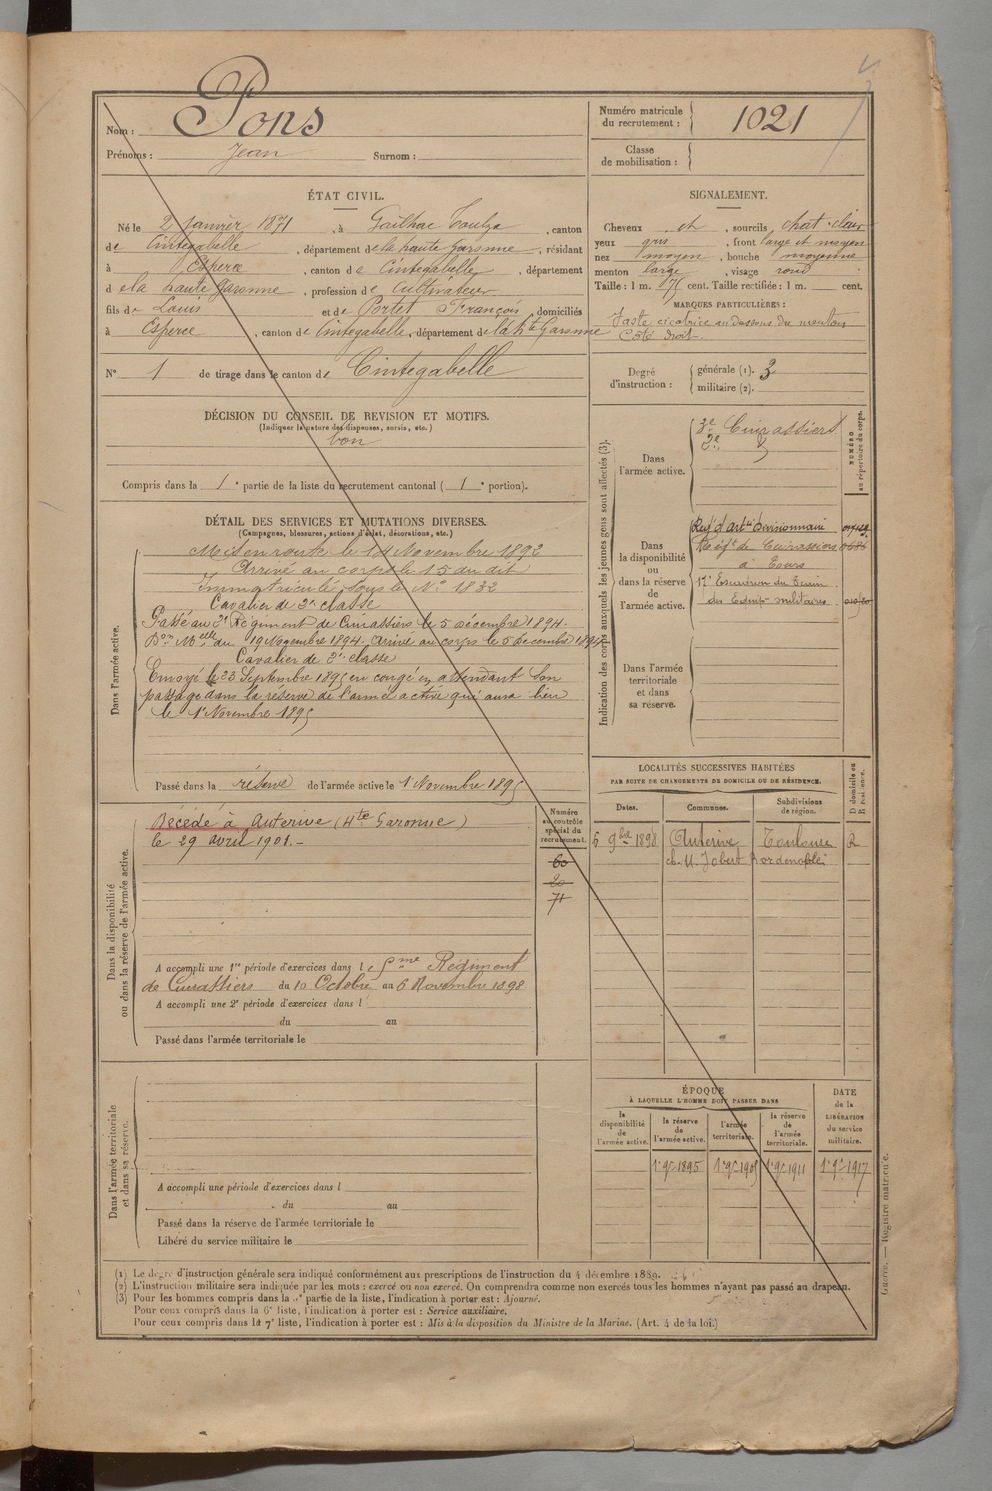 Nom : Pons
Prénoms : Jean Surnom :
Numéro matricule du recrutement : 1021
Classe de mobilisation :
ÉTAT CIVIL.
Né le 2 janvier 1871, à Gailhac Toulza, canton
de Cintegabelle, département de la haute Garonne, résidant
à Esperce, canton de Cintegabelle, département
de la haute Garonne, profession de Cultivateur
fils de Louis et de Portet François, domiciliés
à Esperce, canton de Cintegabelle, département de la hte Garonne
N° 1 de tirage dans le canton de Cintegabelle
SIGNALEMENT.
Cheveux et, sourcils chat-clair
yeux gris, front large et moyen
nez moyen, bouche moyenne
menton large, visage rond
Taille : 1 m. cent. Taille rectifiée : 1 m. cent.
MARQUES PARTICULIÈRES :
cicatrice au dessous du menton
Côté droit.
Degré d'instruction :
générale (1). 3
militaire (2).
DÉCISION DU CONSEIL DE REVISION ET MOTIFS.
(Indiquer la nature des dispenses, sursis, etc.)
bon
Compris dans la 1e partie de la liste du recrutement cantonal ( 1e portion).
DÉTAIL DES SERVICES ET MUTATIONS DIVERSES.
(Campagnes, blessures, actions d'éclat, décorations, etc.)
Dans l'armée active.
Mis en route le 14 Novembre 1892
Arrivé au corps le 15 du dit
Immatriculé sous le N° 1832
Cavalier de 2e classe
Passé au 2e Régiment de Cuirassiers le 5 décembre 1894.
Don Melle du 19 Novembre 1894. Arrivé au corps le 5 décembre 1894
Cavalier de 2e classe
Envoyé le 23 Septembre 1895 en congé en attendant son
passage dans la réserve de l'armée active qui aura lieu
le 1er Novembre 1895
Passé dans la réserve de l'armée active le 1 Novembre 1895
Indication des corps auxquels les jeunes gens sont affectés (3).
NUMÉRO au répertoire du corps.
Dans l'armée active.
3e Cuirassiers
2e
Dans la disponibilité ou dans la réserve de l'armée active.
d'artie divisionnaire
Régt de Cuirassiers
à Tours
17e Escadron du Train
des Equips militaires
Dans l'armée territoriale et dans sa réserve.
LOCALITÉS SUCCESSIVES HABITÉES
PAR SUITE DE CHANGEMENTS DE DOMICILE OU DE RÉSIDENCE.
D domicile ou R résidence.
Dates. Communes. Subdivisions de région.
6 9bre 1898 Auterive Toulouse R
ch. M. Jobert
Dans la disponibilité ou dans la réserve de l'armée active.
Numéro au contrôle spécial du recrutement.
Décédé à Auterive (Hte Garonne)
le 29 avril 1901.-
60
20
71
A accompli une 1re période d'exercices dans le Régiment
de Cuirassiers du 10 Octobre au 6 Novembre 1898
A accompli une 2e période d'exercices dans l
du au
Passé dans l'armée territoriale le
Dans l'armée territoriale et dans sa réserve.
A accompli une période d'exercices dans l
du au
Passé dans la réserve de l'armée territoriale le
Libéré du service militaire le
ÉPOQUE
À LAQUELLE L'HOMME DOIT PASSER DANS
la disponibilité de l'armée active.
la réserve de l'armée active.
l'armée territoriale.
la réserve de l'armée territoriale.
DATE de la LIBÉRATION du service militaire.
1er 9re 1895 1er 9re 1905 1er 9re 1911 1er 9re 1917
(1) Le degré d'instruction générale sera indiqué conformément aux prescriptions de l'instruction du 4 décembre 1889.
(2) L'instruction militaire sera indiquée par les mots : exercé ou non exercé. On comprendra comme non exercés tous les hommes n'ayant pas passé au drapeau.
(3) Pour les hommes compris dans la 5e partie de la liste, l'indication à porter est : Ajourné.
Pour ceux compris dans la 6e liste, l'indication à porter est : Service auxiliaire.
Pour ceux compris dans la 7e liste, l'indication à porter est : Mis à la disposition du Ministre de la Marine. (Art. 4 de la loi.)
Guerre. — Registre matricule.